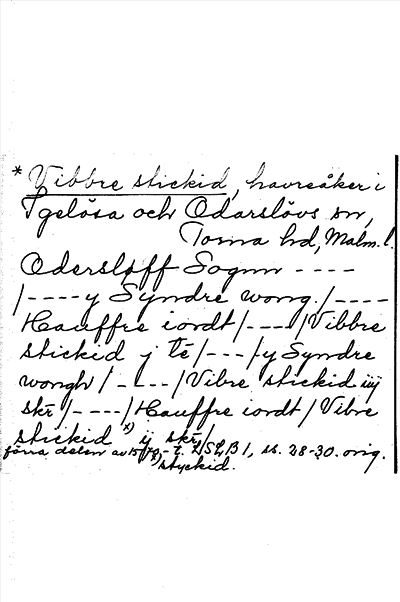 * Vibbre stickid, havreåker i
Igelösa och Odarslövs sn,
Torna hd, Malm. l.
Odersløff Sognn ----
/----y Syndre wong./----
Hauffre iordt/----/Vibbre
stickid j tē/---/y Syndre
wongh/----/Vibre stickid iiij
skr̄/----/Hauffre iordt/Vibre
stickid x) ij skr̄/
förra delen av 15 -t. LSLB 1, ss. 28-30. orig.
styckid.